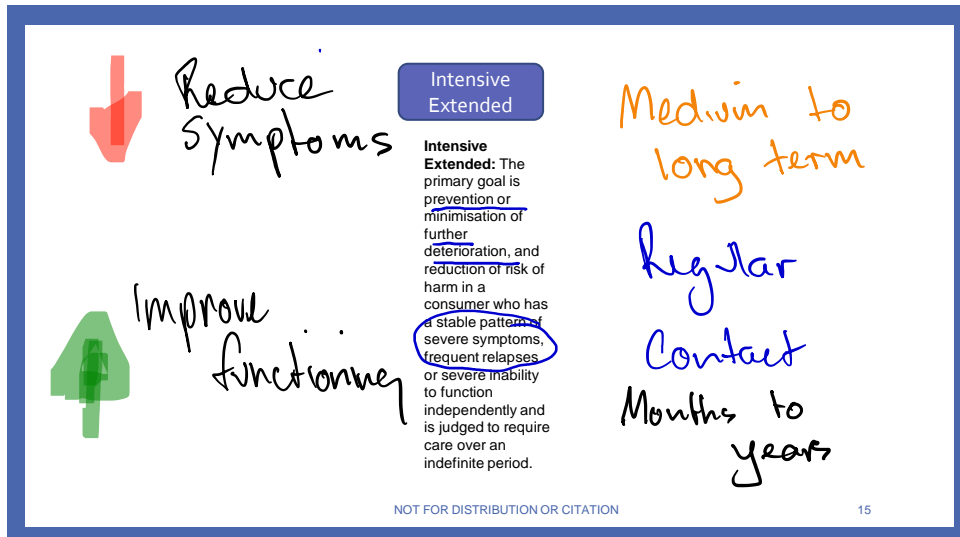 Reduce
Symptoms
Improve
functioning
Intensive
Extended
Intensive
Extended: The
primary goal is
prevention or
minimisation of
further
deterioration, and
reduction of risk of
harm in a
consumer who has
a stable pattern of
severe symptoms,
frequent relapses
or severe inability
to function
independently and
is judged to require
care over an
indefinite period.
Medium to
long term
Regular
Contact
Months to
years
NOT FOR DISTRIBUTION OR CITATION
15